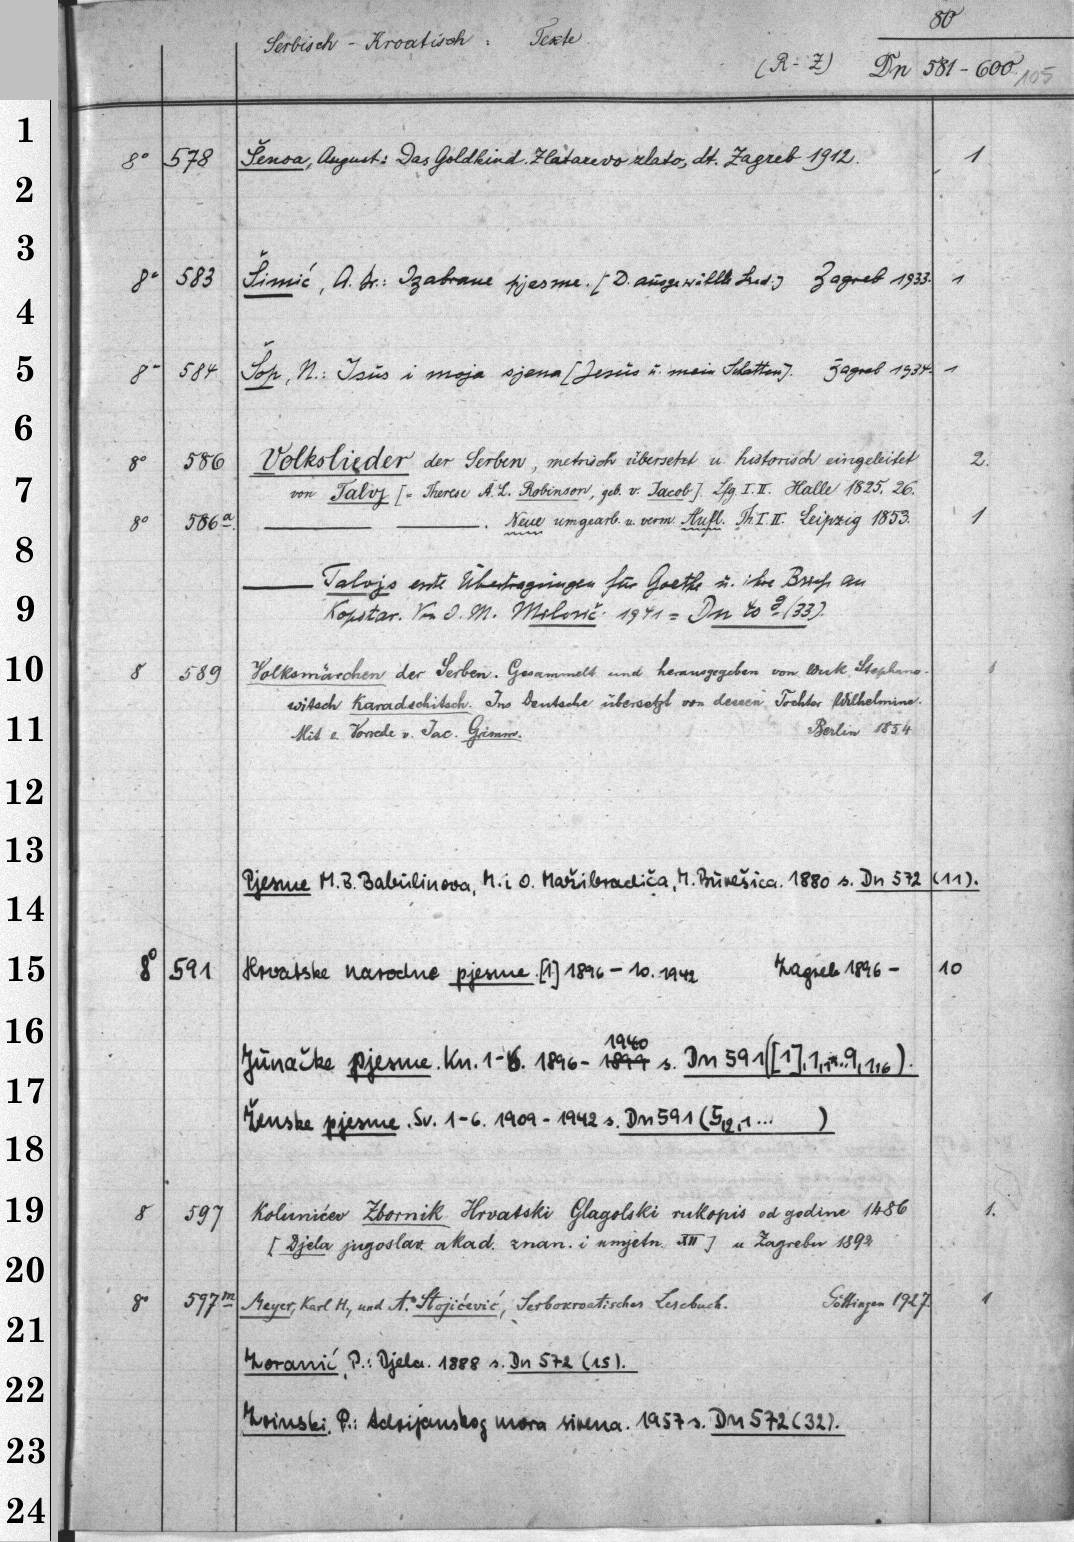 80
Serbisch - Kroatisch : Texte
(R - Z) Dn 581 - 600
105
1
8° 578 Šenoa, August: Das Goldkind. Zlatarevo zlato, dt. Zagreb 1912. 1
2
3
8° 583 Šimić, A. Br.: Izabrane pjesme. [D. ausgewählte Lied.] Zagreb 1933. 1
4
5
8° 584 Šop, N.: Isus i moja sjena [Jesus u. mein Schatten]. Zagreb 1934. 1
6
8° 586 Volkslieder der Serben, metrisch übersetzt u. historisch eingeleitet 2.
7
von Talvj [= Therese A. L. Robinson, geb. v. Jacob]. Lfg. I. II. Halle 1825. 26.
8° 586a ——— ———. Neue umgearb. u. verm. Aufl. Th. I. II. Leipzig 1853. 1
8
——— Talvjs erste Übertragungen für Goethe u. ihre Briefe an
9
Kopitar. Von J. M. Milović. 1941 = Dn 40 g (33).
10
8 589 Volksmärchen der Serben. Gesammelt und herausgegeben von Wuk Stephano- 1
witsch Karadschitsch. Ins Deutsche übersetzt von dessen Tochter Wilhelmine.
11
Mit e. Vorrede v. Jac. Grimm. Berlin 1854
12
13
Pjesme M. B. Babulinova, M. i O. Mažibradića, M. Burešića. 1880 s. Dn 572 (11).
14
15
8° 591 Hrvatske narodne pjesme. [1] 1896 - 10. 1942 Zagreb 1896 - 10
16
1940
Junačke pjesme. Kn. 1-6. 1896 - 1899 s. Dn 591 ([1],1, ... 9,1,6).
17
Ženske pjesme. Sv. 1-6. 1909 - 1942 s. Dn 591 (5,2,1 ... )
18
19
8 597 Kolunićev Zbornik Hrvatski Glagolski rukopis od godine 1486 1.
[Djela jugoslav. akad. znan. i umjetn. XII] u Zagrebu 1892
20
8° 597m Meyer, Karl H., und A. Stojićević, Serbokroatisches Lesebuch. Göttingen 1927. 1
21
Zoranić, P.: Djela. 1888 s. Dn 572 (15).
22
Zrinski, P.: Adrijanskog mora sirena. 1957 s. Dn 572 (32).
23
24